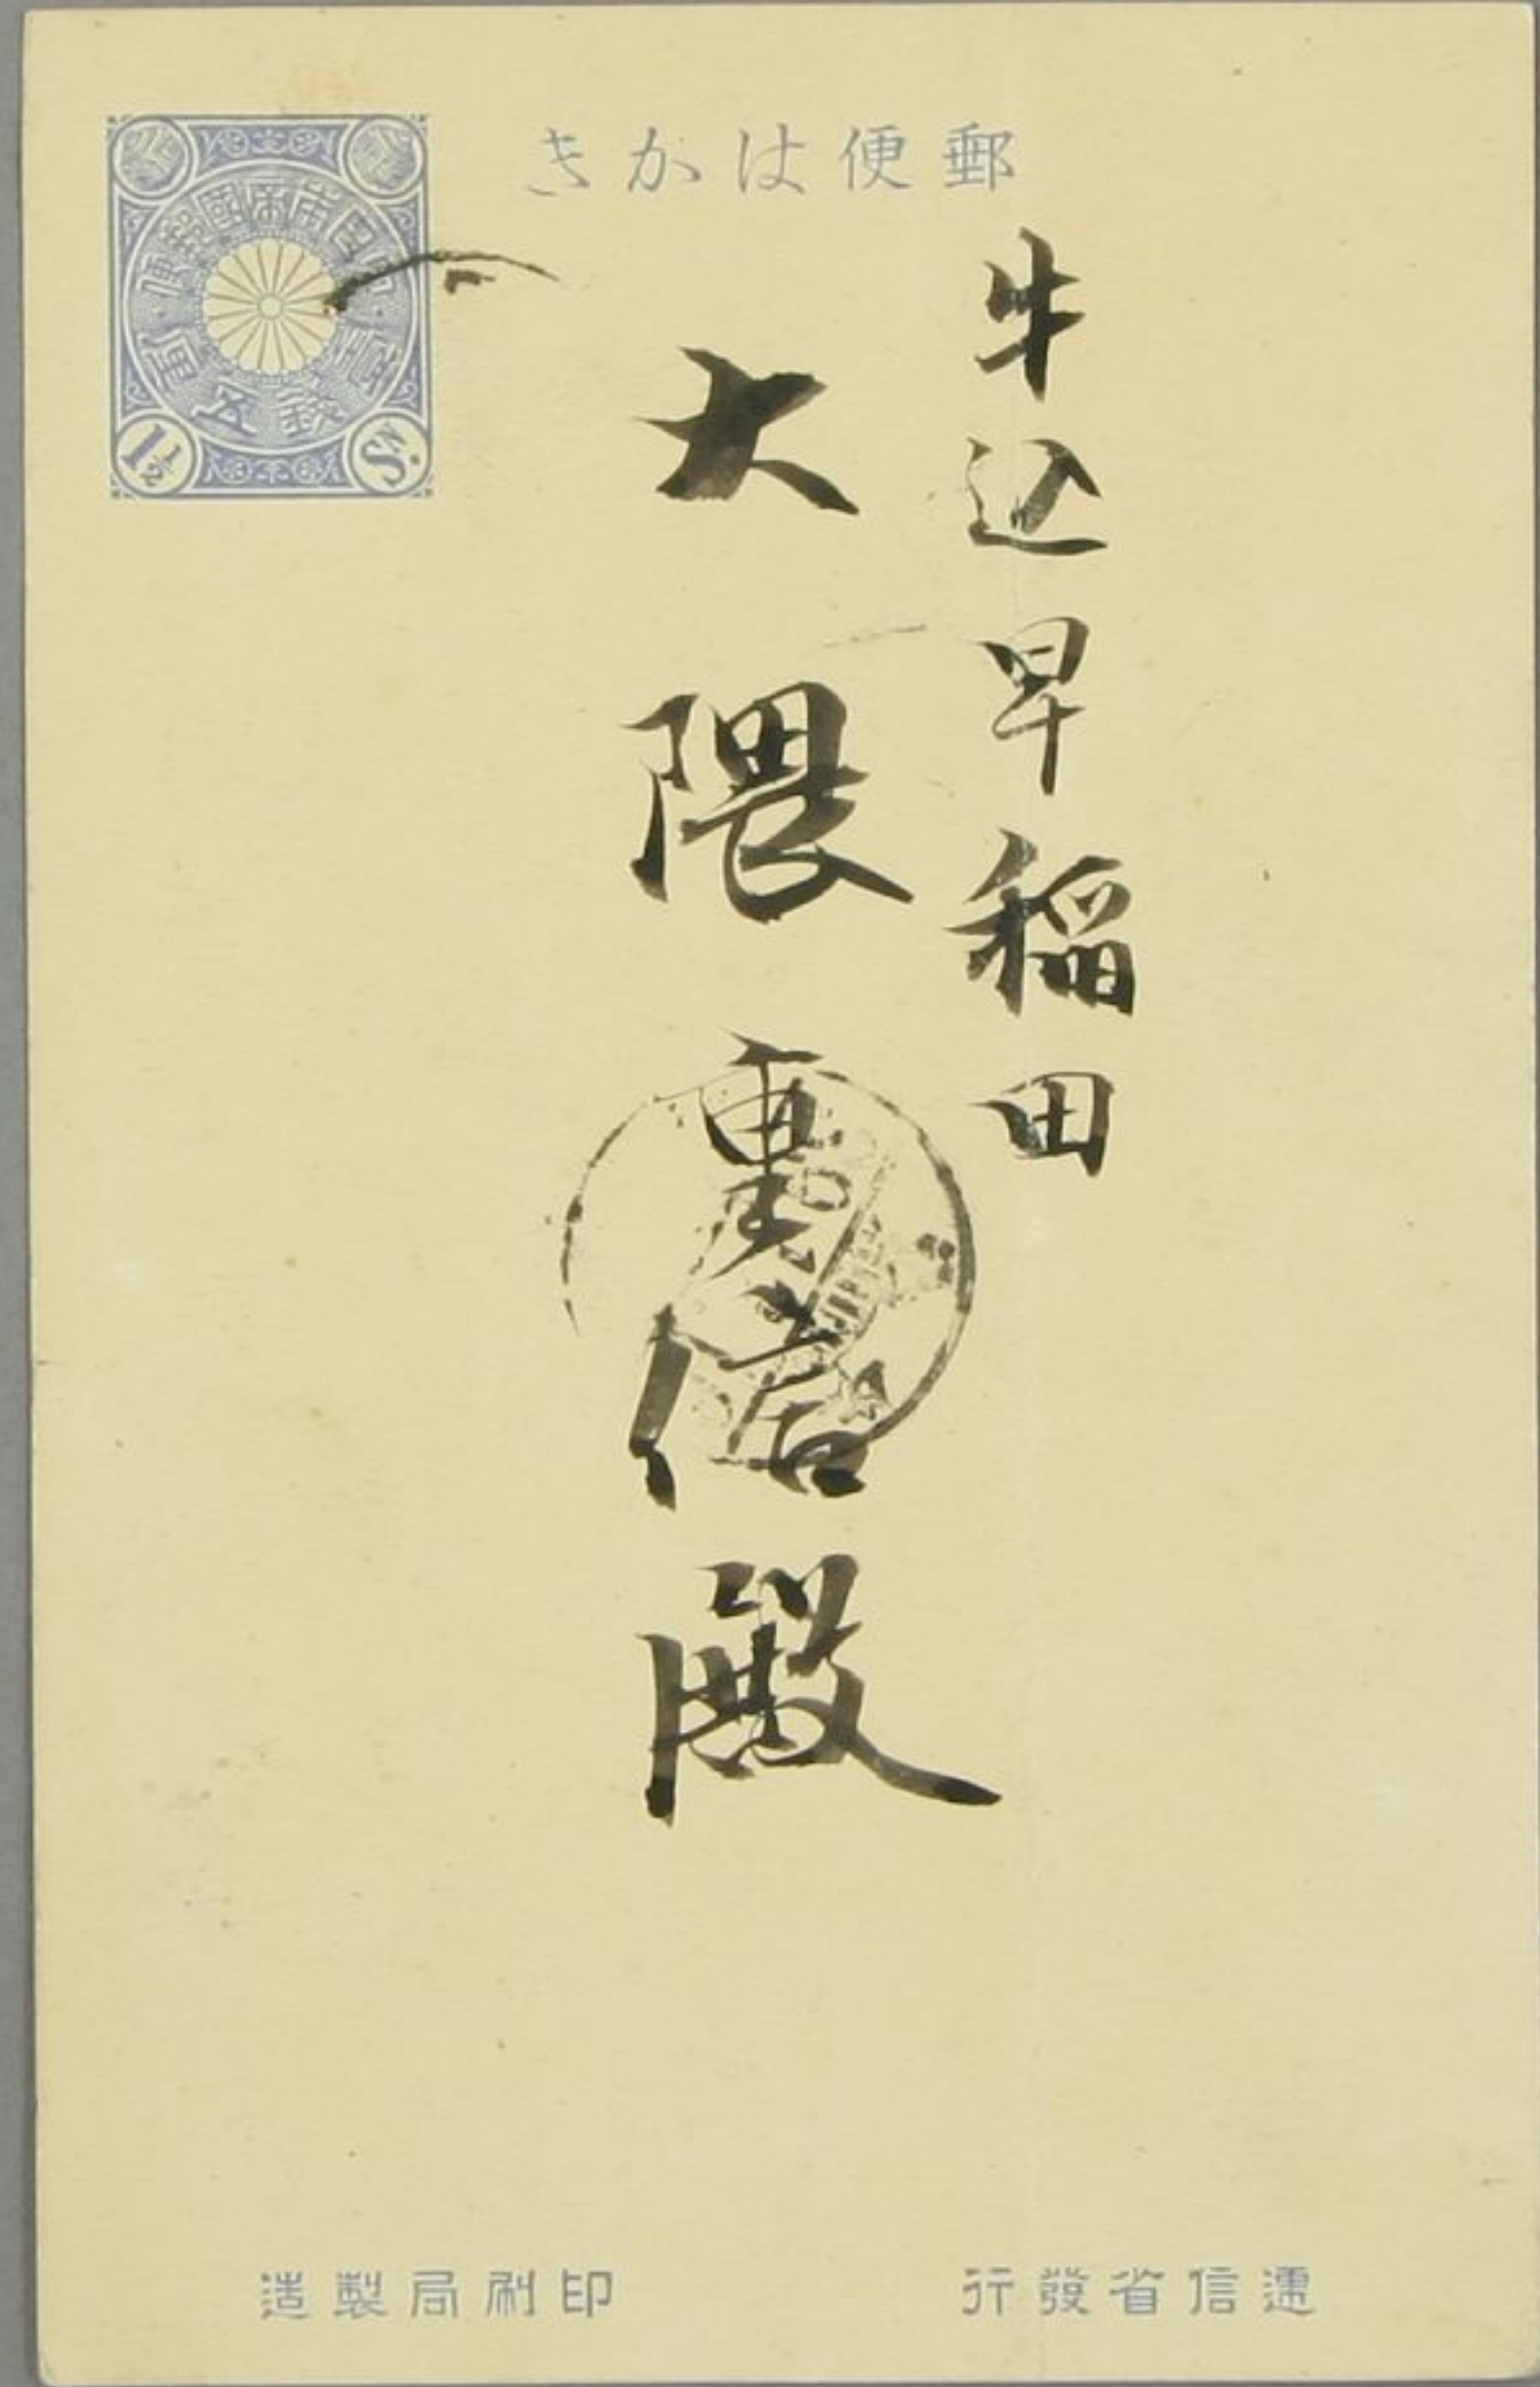 郵便はかき
大日本帝國郵便
壹錢五
1½ Sn.
牛込早稲田
大隈重信殿
逓信省發行
印刷局製造